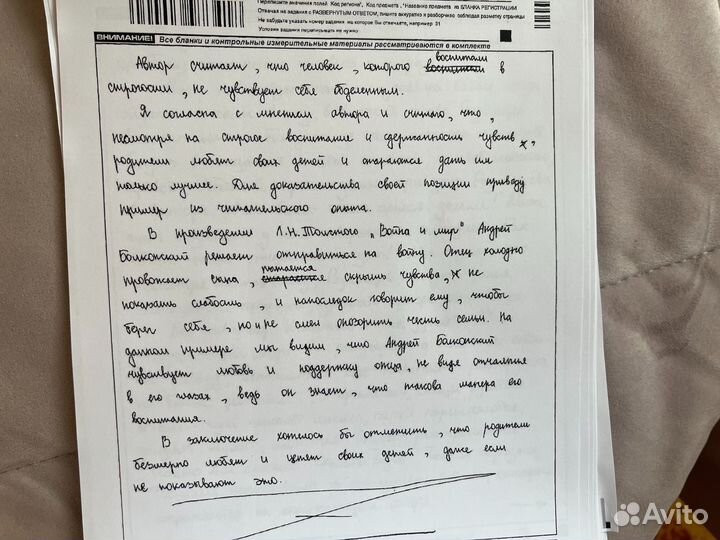 Перепишите значения полей "Код региона", "Код предмета", "Название предмета" из БЛАНКА РЕГИСТРАЦИИ
Отвечая на задания с РАЗВЕРНУТЫМ ОТВЕТОМ, пишите аккуратно и разборчиво, соблюдая разметку страницы
Не забудьте указать номер задания, на которое Вы отвечаете, например 31
Условия задания переписывать не нужно
ВНИМАНИЕ! Все бланки и контрольные измерительные материалы рассматриваются в комплекте
воспитали
Автор считает, что человек, которого в
строгости, не чувствует себя обделенным.
Я согласна с мнением автора и считаю, что,
несмотря на строгое воспитание и сдержанность чувств,
родители любят своих детей и стараются дать им
только лучшее. Для доказательства своей позиции приведу
пример из читательского опыта.
В произведении Л.Н.Толстого „Война и мир" Андрей
Болконский решает отправиться на войну. Отец холодно
пытается
провожает сына, скрыть чувства, не
показать слабость, и напоследок говорит ему, чтобы
берег себя, но и не смел опозорить честь семьи. На
данном примере мы видим, что Андрей Болконский
чувствует любовь и поддержку отца, не видя отчаяния
в его глазах, ведь он знает, что такова манера его
воспитания.
В заключение хотелось бы отметить, что родители
безмерно любят и ценят своих детей, даже если
не показывают это.
Avito